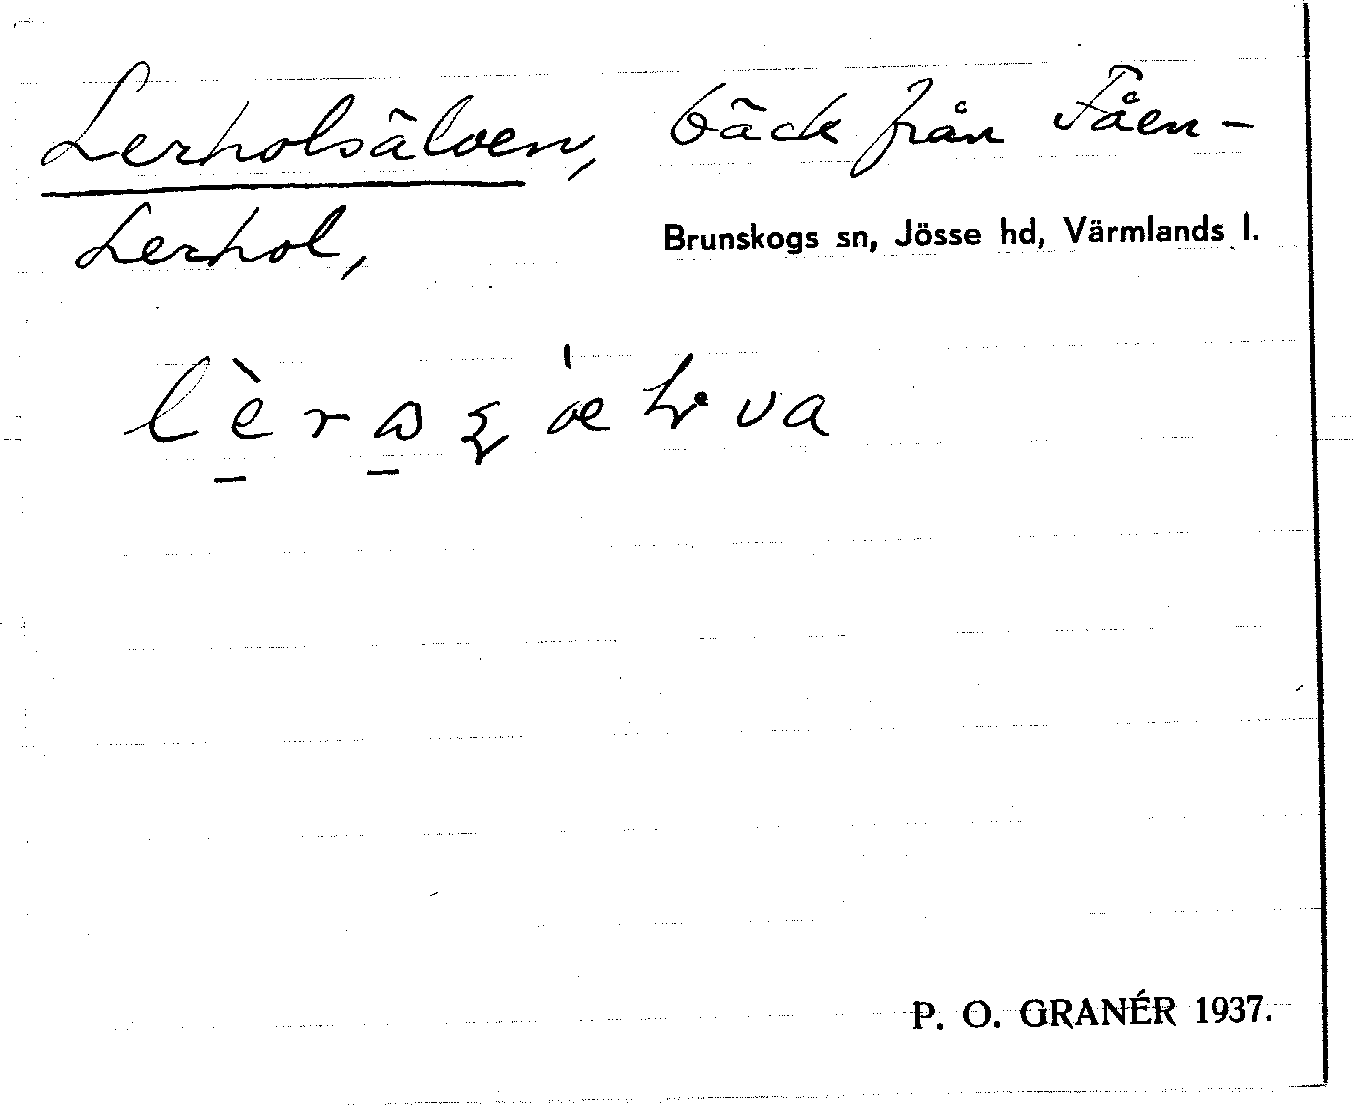 Lerholsälven, bäck från Fåen-
Lerhol, Brunskogs sn, Jösse hd, Värmlands l.
P. O. GRANÉR 1937.